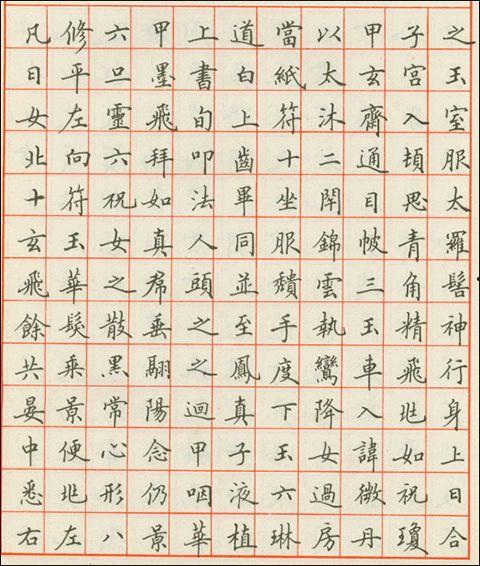 凡修六甲上道當以甲子之
日平旦墨書白紙太玄宮玉
女左靈飛旬上符沐齋入室
北向六拜叩齒十二通頓服
十符祝如法畢坐閇目思太
玄玉女真人同服錦帔青羅
飛華之帬頭並頹雲三角髻
餘髮散垂之至手執玉精神
共乘黑翮之鳳度鸞車飛行
晏景常陽迴真下降入兆身
中便心念甲子玉女諱如上
悉兆形仍咽液六過微祝曰
右左八景華植琳房丹瓊合